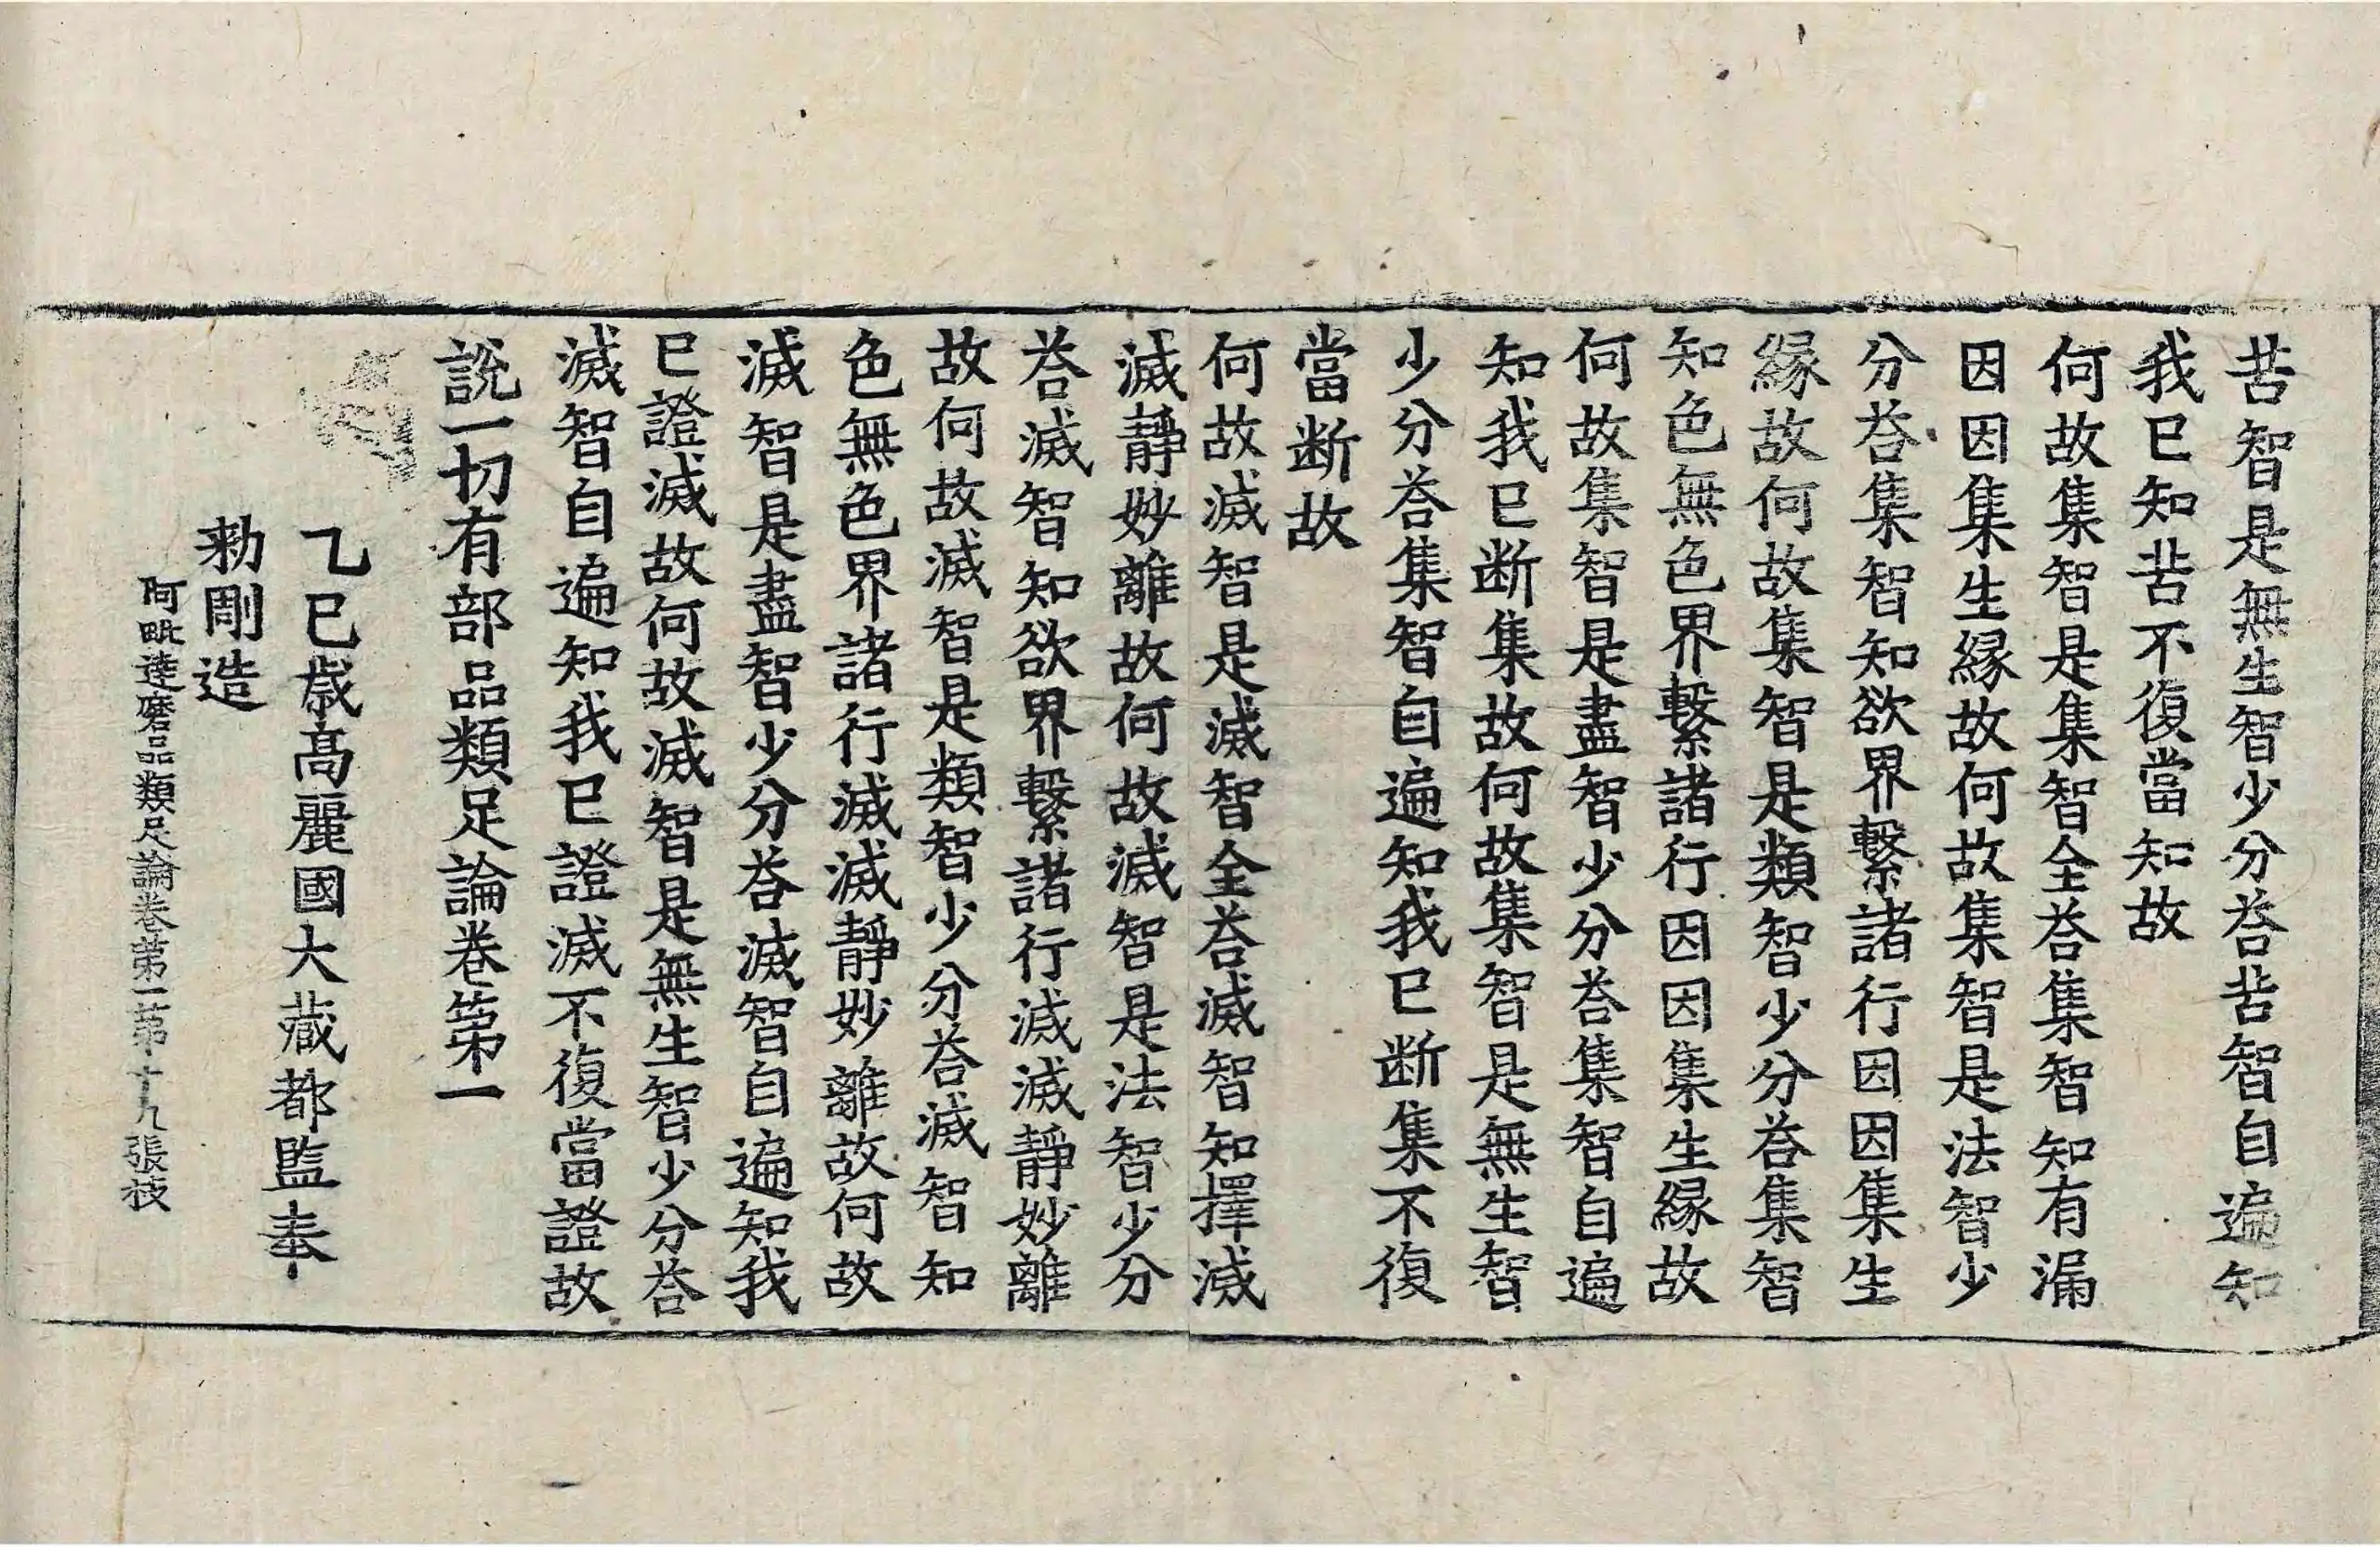 苦智是無生智少分荅苦智自遍知
我已知苦不復當知故
何故集智是集智全荅集智知有漏
因因集生緣故何故集智是法智少
分荅集智知欲界繫諸行因因集生
緣故何故集智是類智少分荅集智
知色無色界繫諸行因因集生緣故
何故集智是盡智少分荅集智自遍
知我已断集故何故集智是無生智
少分荅集智自遍知我已断集不復
當断故
何故滅智是滅智全荅滅智知擇滅
滅靜妙離故何故滅智是法智少分
荅滅智知欲界繫諸行滅滅靜妙離
故何故滅智是類智少分荅滅智知
色無色界諸行滅滅靜妙離故何故
滅智是盡智少分荅滅智自遍知我
已證滅故何故滅智是無生智少分荅
滅智自遍知我已證滅不復當證故
說一切有部品類足論卷第一
乙巳歲高麗國大藏都監奉
勑彫造
阿毗達磨品類足論卷第一第十九張技